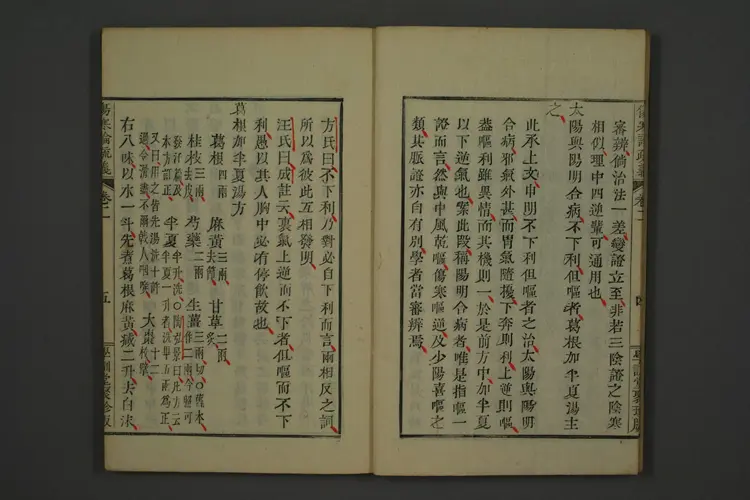 審辨倘治法一差變證立至非若三陰證之陰寒
相似理中四逆輩可通用也
太陽與陽明合病不下利但嘔者葛根加半夏湯主
之
此承上文申明不下利但嘔者之治太陽與陽明
合病邪氣外甚而胃氣隨擾下奔則利上逆則嘔
蓋嘔利雖異情而其機則一於是前方中加半夏
以下逆氣也案此段稱陽明合病者唯是指嘔一
證而言然與中風乾嘔傷寒嘔逆及少陽喜嘔之
類其脈證亦自有別學者當審辨焉
方氏曰不下利乃對必自下利而言兩相反之詞
所以為彼此互相發明
汪氏曰成註云裏氣上逆而不下者但嘔而不下
利愚以其人胸中必有停飲故也
葛根加半夏湯方
葛根四兩 麻黃三兩去節 甘草二兩炙
桂枝三兩去皮 芍藥二兩 生薑三兩切
半夏半升洗 大棗十二枚擘
右八味以水一斗先煮葛根麻黃減二升去白沫
傷寒論疏義 卷二 五